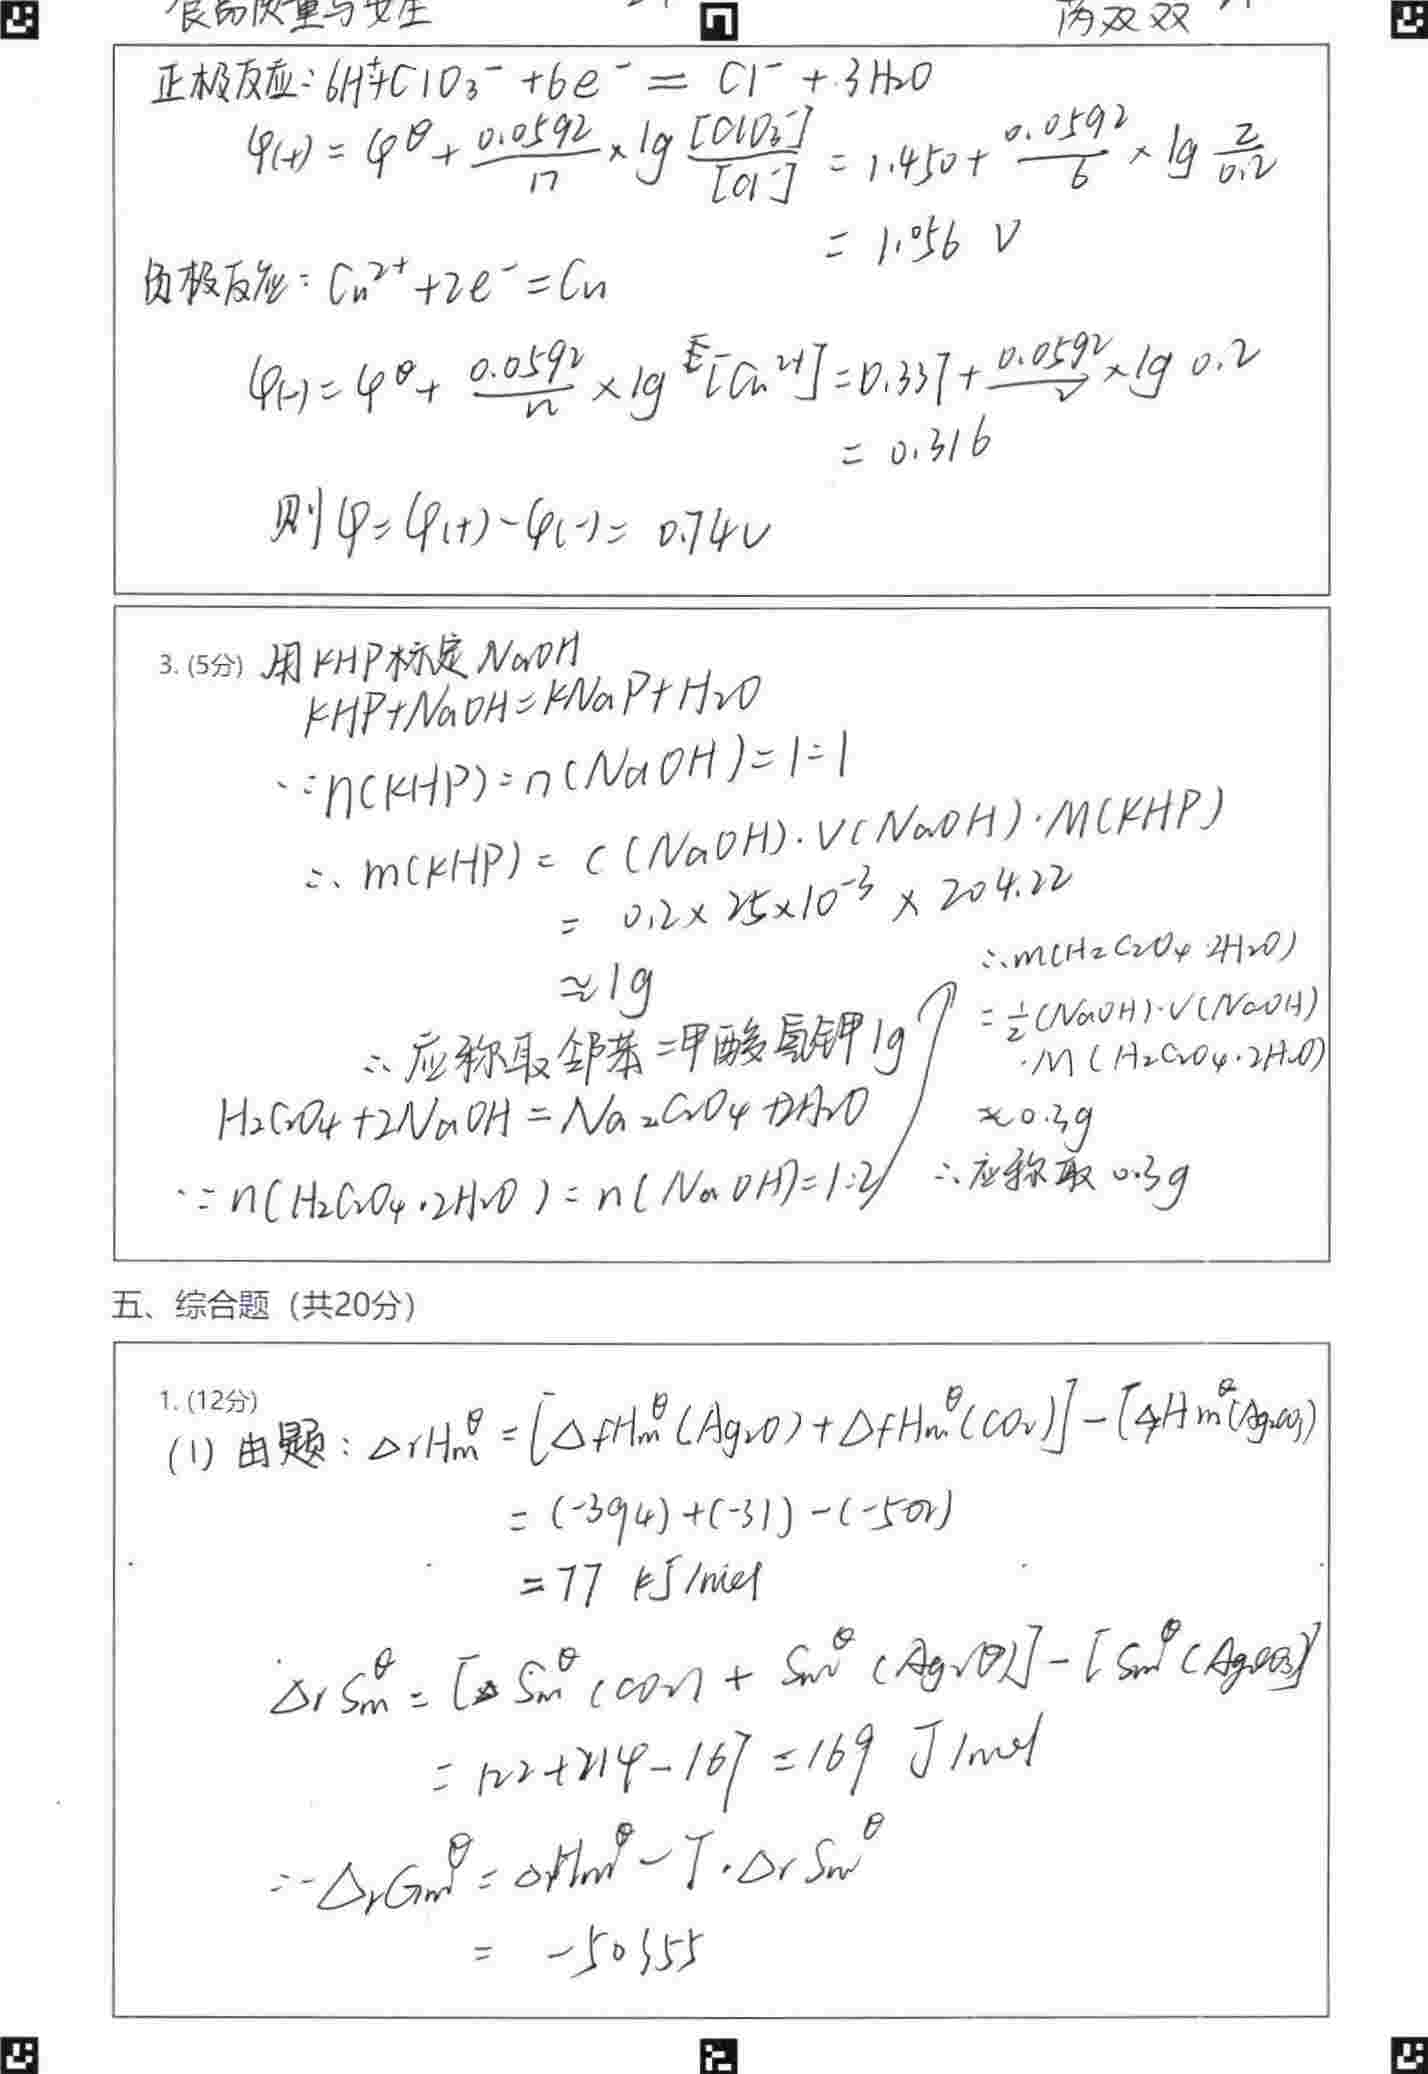 食品质量与安全
芮双双
正极反应:6H⁺+ClO₃⁻+6e⁻=Cl⁻+3H₂O
φ(+)=φ^θ+0.0592/n×lg[ClO₃⁻]/[Cl⁻]=1.450+0.0592/6×lg 2/0.2
=1.056 V
负极反应:Cu²⁺+2e⁻=Cu
φ(-)=φ^θ+0.0592/n×lg[Cu²⁺]=0.337+0.0592/2×lg 0.2
=0.316
则φ=φ(+)-φ(-)=0.74V
3. (5分) 用KHP标定NaOH
KHP+NaOH=KNaP+H₂O
∵n(KHP):n(NaOH)=1:1
∴m(KHP)=c(NaOH)·V(NaOH)·M(KHP)
=0.2×25×10⁻³×204.22
≈1g
∴应称取邻苯二甲酸氢钾1g
H₂C₂O₄+2NaOH=Na₂C₂O₄+2H₂O
∵n(H₂C₂O₄·2H₂O):n(NaOH)=1:2
∴m(H₂C₂O₄·2H₂O)
=½(NaOH)·V(NaOH)
·M(H₂C₂O₄·2H₂O)
≈0.3g
∴应称取0.3g
五、综合题(共20分)
1. (12分)
(1)由题:ΔrHm^θ=[ΔfHm^θ(Ag₂O)+ΔfHm^θ(CO₂)]-[ΔfHm^θ(Ag₂CO₃)
=(-394)+(-31)-(-502)
=77 kJ/mol
ΔrSm^θ=[Sm^θ(CO₂)+Sm^θ(Ag₂O)]-[Sm^θ(Ag₂CO₃)]
=122+214-167=169 J/mol
∵ΔrGm^θ=ΔrHm^θ-T·ΔrSm^θ
=-50355